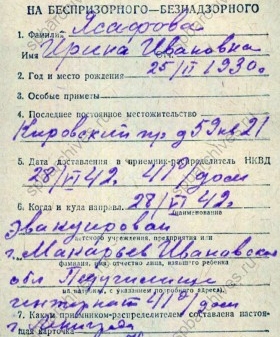 НА БЕСПРИЗОРНОГО—БЕЗНАДЗОРНОГО
1. Фамилия
Имя Ирина Ивановна
2. Год и место рождения 25/II 1930г
3. Особые приметы
4. Последнее постоянное местожительство
Кировский пр д 59 кв 21
5. Дата доставления в приемник-распределитель НКВД
28/VI 42г.
6. Когда и куда направл. 28/VI 42г.
(наименование
Эвакуирован
детского учреждения, предприятия или
г. Макарьев Ивановская
фамилия, имя, отчество лица, взявшего ребенка
обл
на патронат, с указанием подробного адреса).
интернат
7. Каким приемником-распределителем составлена настоя-
щая карточка г. Ленинграда